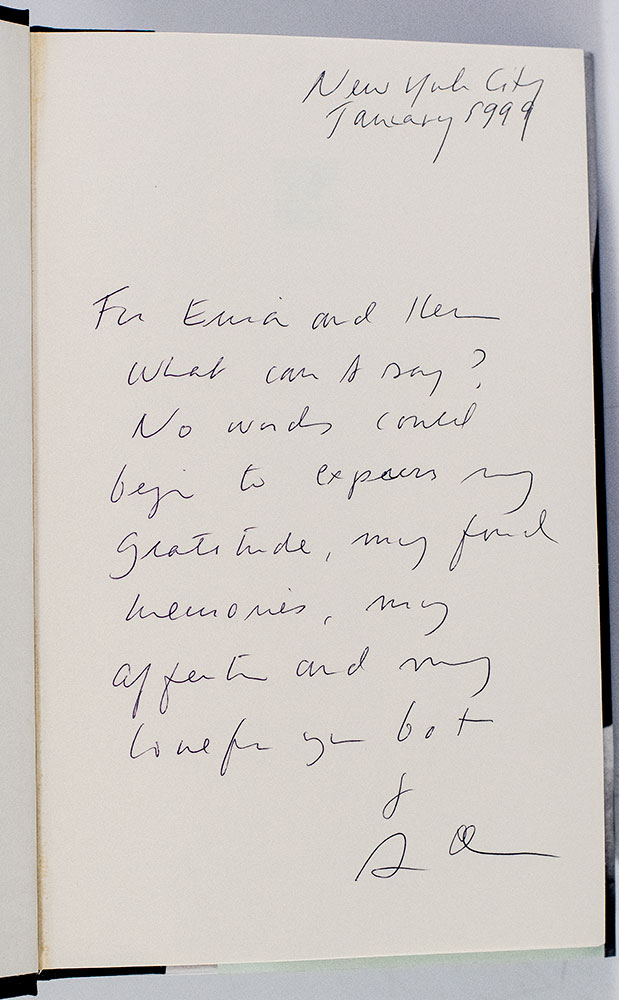 New York City
January 1999
For Erica and Ken
What can I say?
No words could
begin to express my
gratitude, my fond
memories, my
affection and my
love for you both